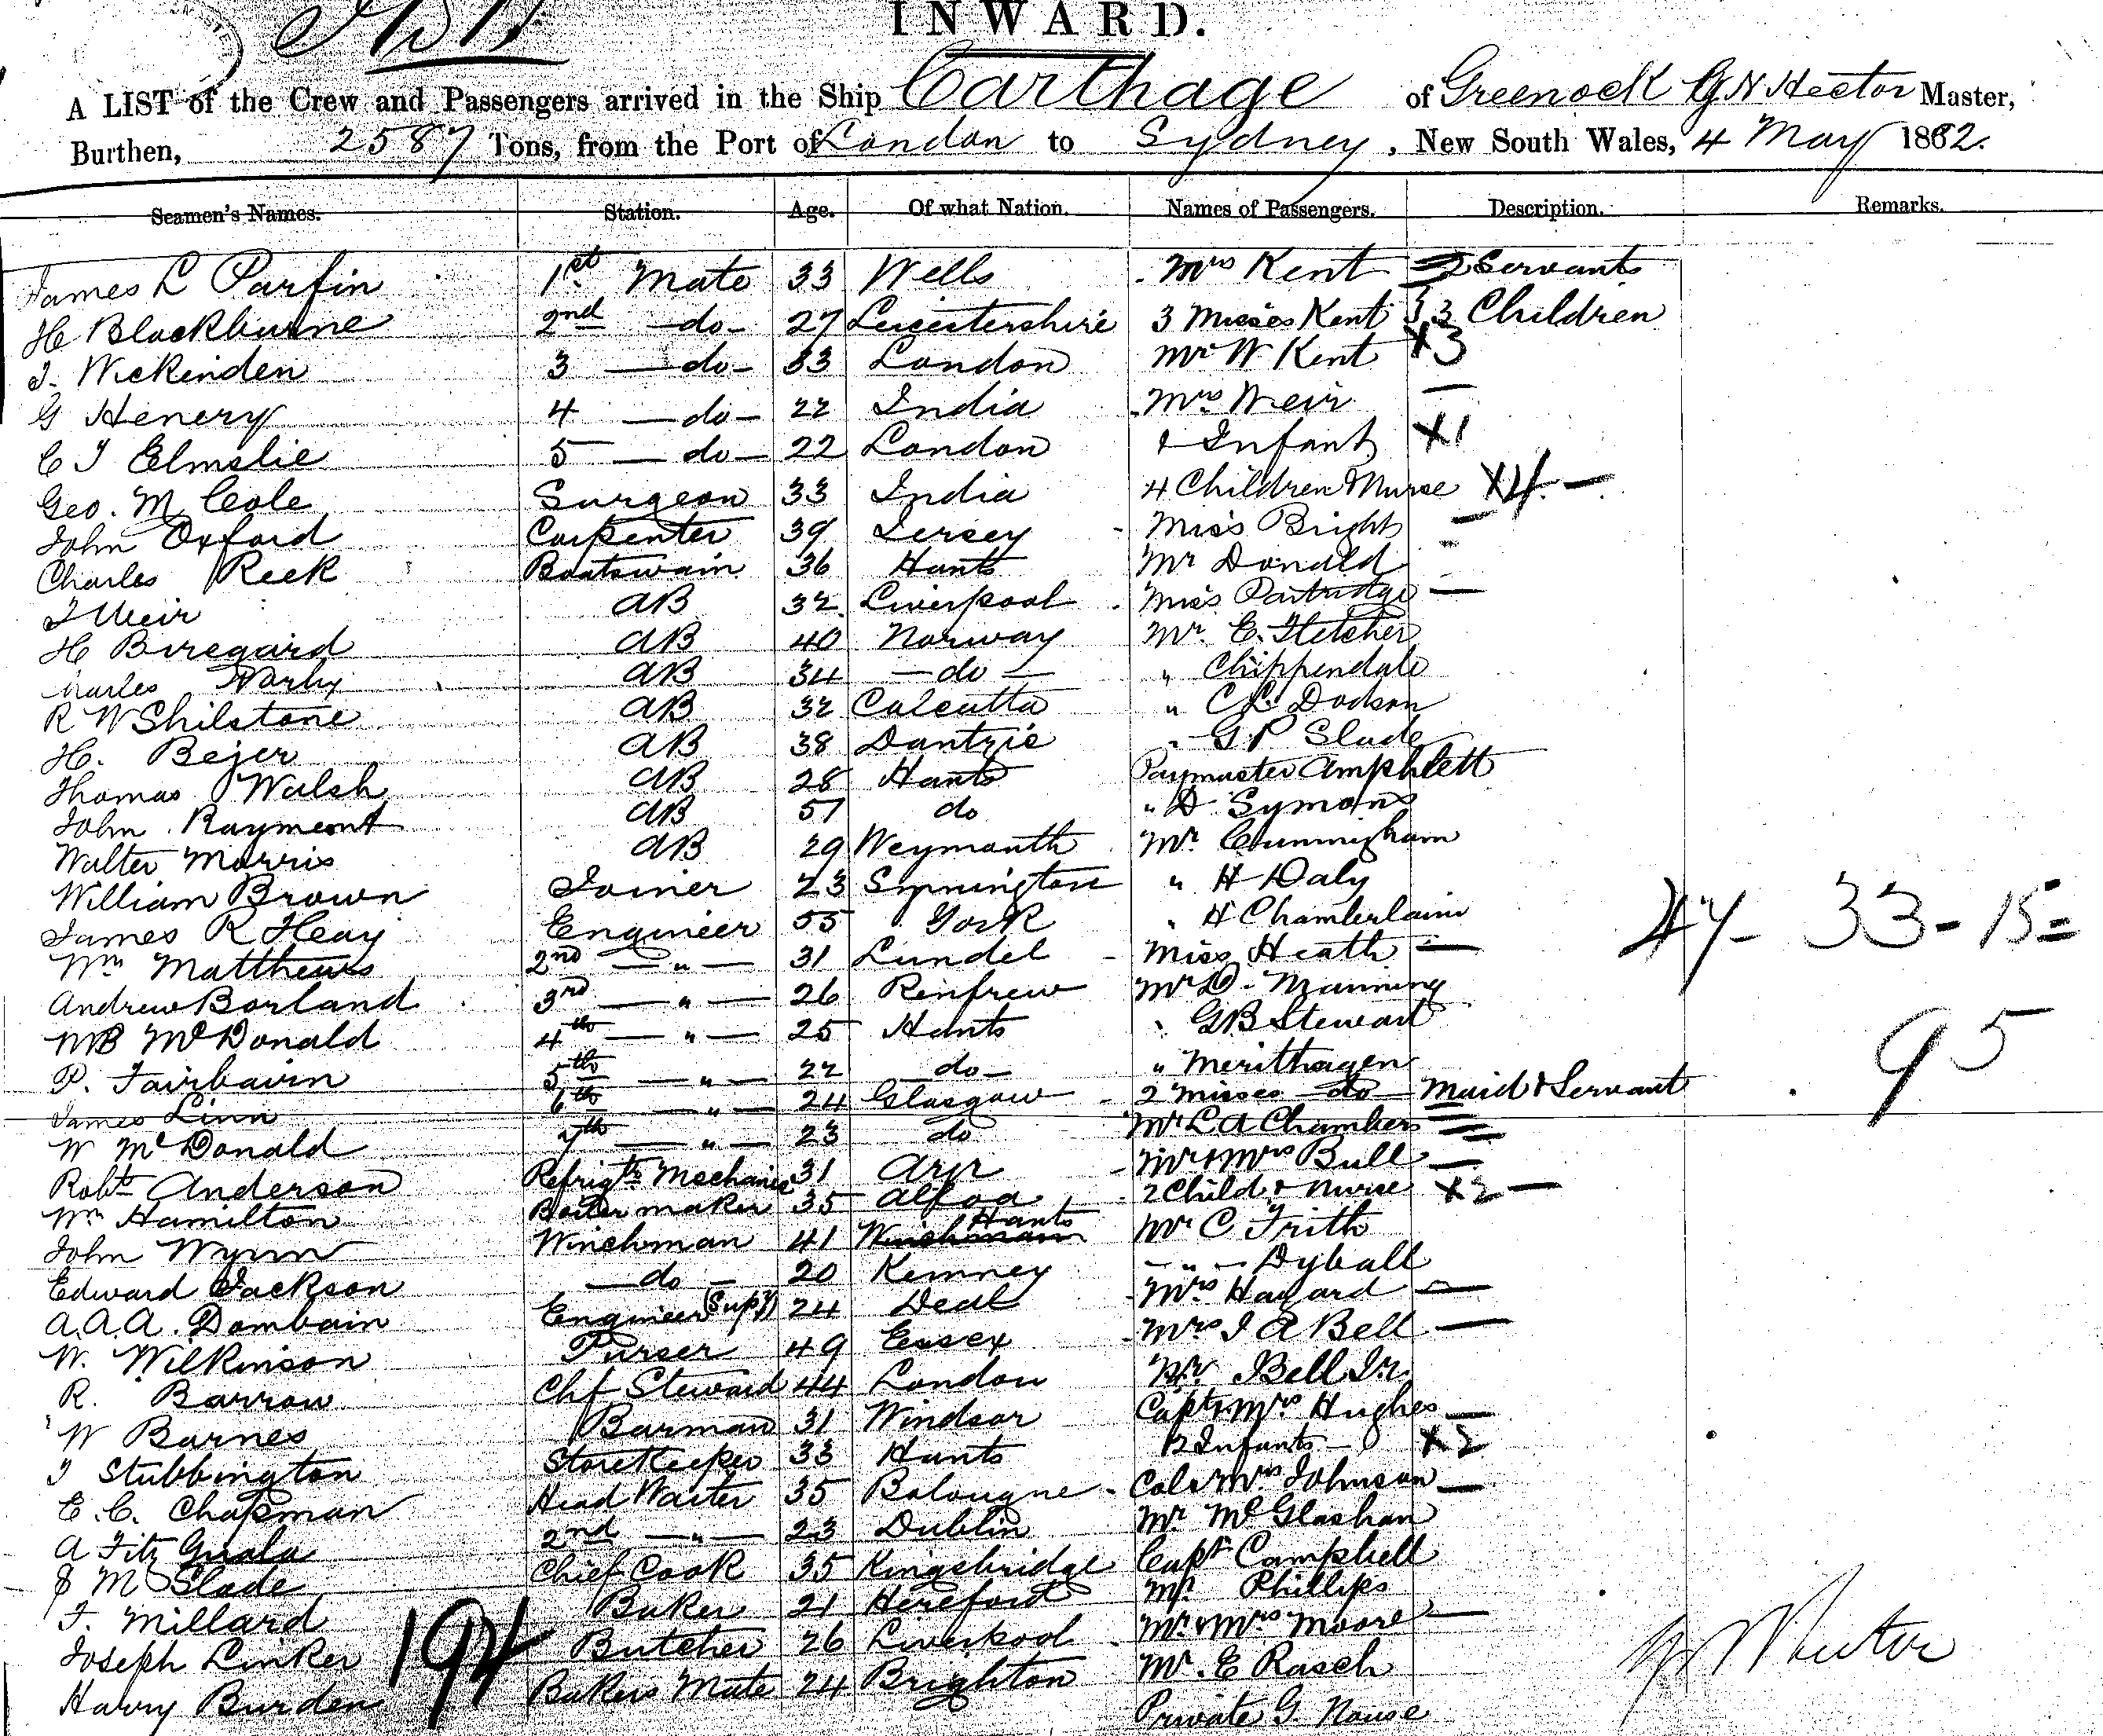 INWARD.
A LIST of the Crew and Passengers arrived in the Ship Carthage of Greenock G N Hector Master,
Burthen, 2587 Tons, from the Port of London to Sydney, New South Wales, 4 May 1882.
Seamen's Names. Station. Age. Of what Nation. Names of Passengers. Description. Remarks.
James L Parfin 1st Mate 33 Wells Mrs Kent 2 Servants
H Blackburne 2nd do 27 Leicestershire 3 Misses Kent 3 Children
J. Wickenden 3 do 33 London Mr W Kent X3
G Henery 4 do 22 India Mrs Weir
C J Elmslie 5 do 22 London & Infant X1
Geo. M Cole Surgeon 33 India 4 Children & Nurse X4
John Oxford Carpenter 39 Jersey Miss Bright
Charles Reek Boatswain 36 Hants Mr Donald
J Weir AB 32 Liverpool Miss Partridge
H Buregard AB 40 Norway Mr. E. Fletcher
Charles AB 34 do " Chippendale
R W Shilstone AB 32 Calcutta " C L Dodson
H. Bejer AB 38 Dantzic " G P Slade
Thomas Walsh AB 28 Hants Paymaster Amphlett
John Rayment AB 51 do " D Symons
Walter Morris AB 29 Weymouth Mr. Cunningham
William Brown Joiner 23 Symington " H Daly
James R Heay Engineer 55 York " H Chamberlain
Wm Matthews 2nd " 31 Lundel Miss Heath 47 - 33 - 15 =
Andrew Borland 3rd " 26 Renfrew Mr D. Manning
W B McDonald 4th " 25 Hants " G B Stewart 95
P. Fairbairn 5th " 22 do " Merithagen
James Linn 6th " 24 Glasgow 2 Misses do Maid & Servant
W McDonald 7th " 23 do Mr L A Chambers
Robt Anderson Refrigtr Mechanic 31 Ayr Mr & Mrs Bull
Wm Hamilton Boiler maker 35 Alloa 2 Child & Nurse X2
John Wynn Winchman 41 Winchman Hants Mr C Frith
Edward Jackson do 20 Kemney " Dyball
A. A. A. Dombain Engineer (Supy) 24 Deal Mrs Hayard
W. Wilkinson Purser 49 Essex Mrs J A Bell
R. Barrow Chf Steward 44 London Mr. Bell Jr.
W Barnes Barman 31 Windsor Capt & Mrs Hughes
J Stubbington Storekeeper 33 Hants 2 Infants X2
E. C. Chapman Head Waiter 35 Bolougne Col & Mrs Johnson
A Fitz 2nd " 23 Dublin Mr McGlashan
M Slade Chief Cook 35 Kingsbridge Capt Campbell
F. Millard Baker 21 Hereford Mr. Phillips
Joseph Linker Butcher 26 Liverpool Mr & Mrs Moore
Harry Burden 194 Bakers Mate 24 Brighton Mr. E Rasch
Private G Nouse